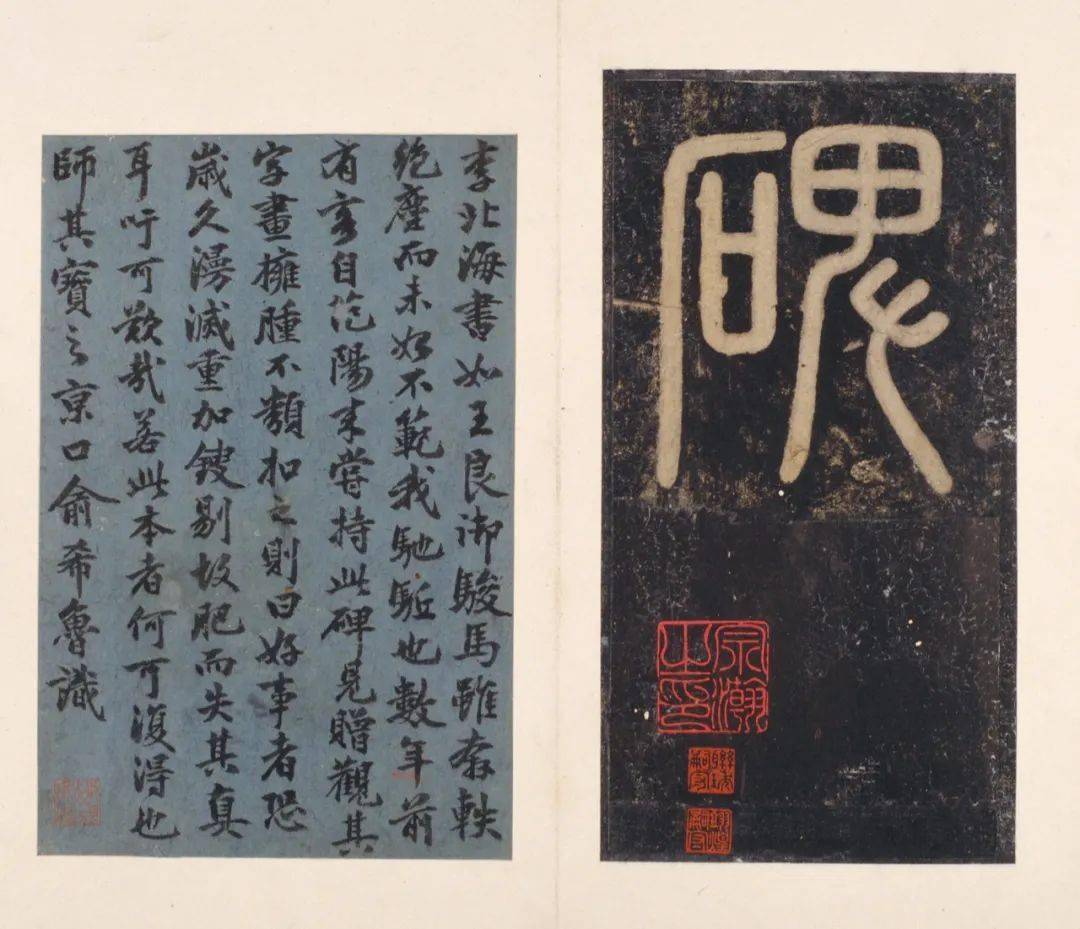 碑
宗瀚之印
李北海書如王良御駿馬雖奔軼
絶塵而未始不範我馳驅也數年前
有客自范陽來嘗持此碑見贈觀其
字畫擁腫不類扣之則曰好事者恐
歲久漫滅重加鋟剔故肥而失其真
耳吁可歎哉若此本者何可復得也
師其寶之京口俞希魯識